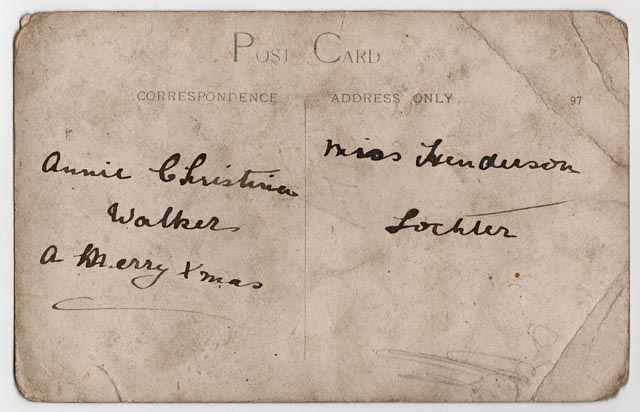 POST CARD
CORRESPONDENCE
ADDRESS ONLY
97
Annie Christina
Walker
A Merry Xmas
Miss Henderson
Lochter